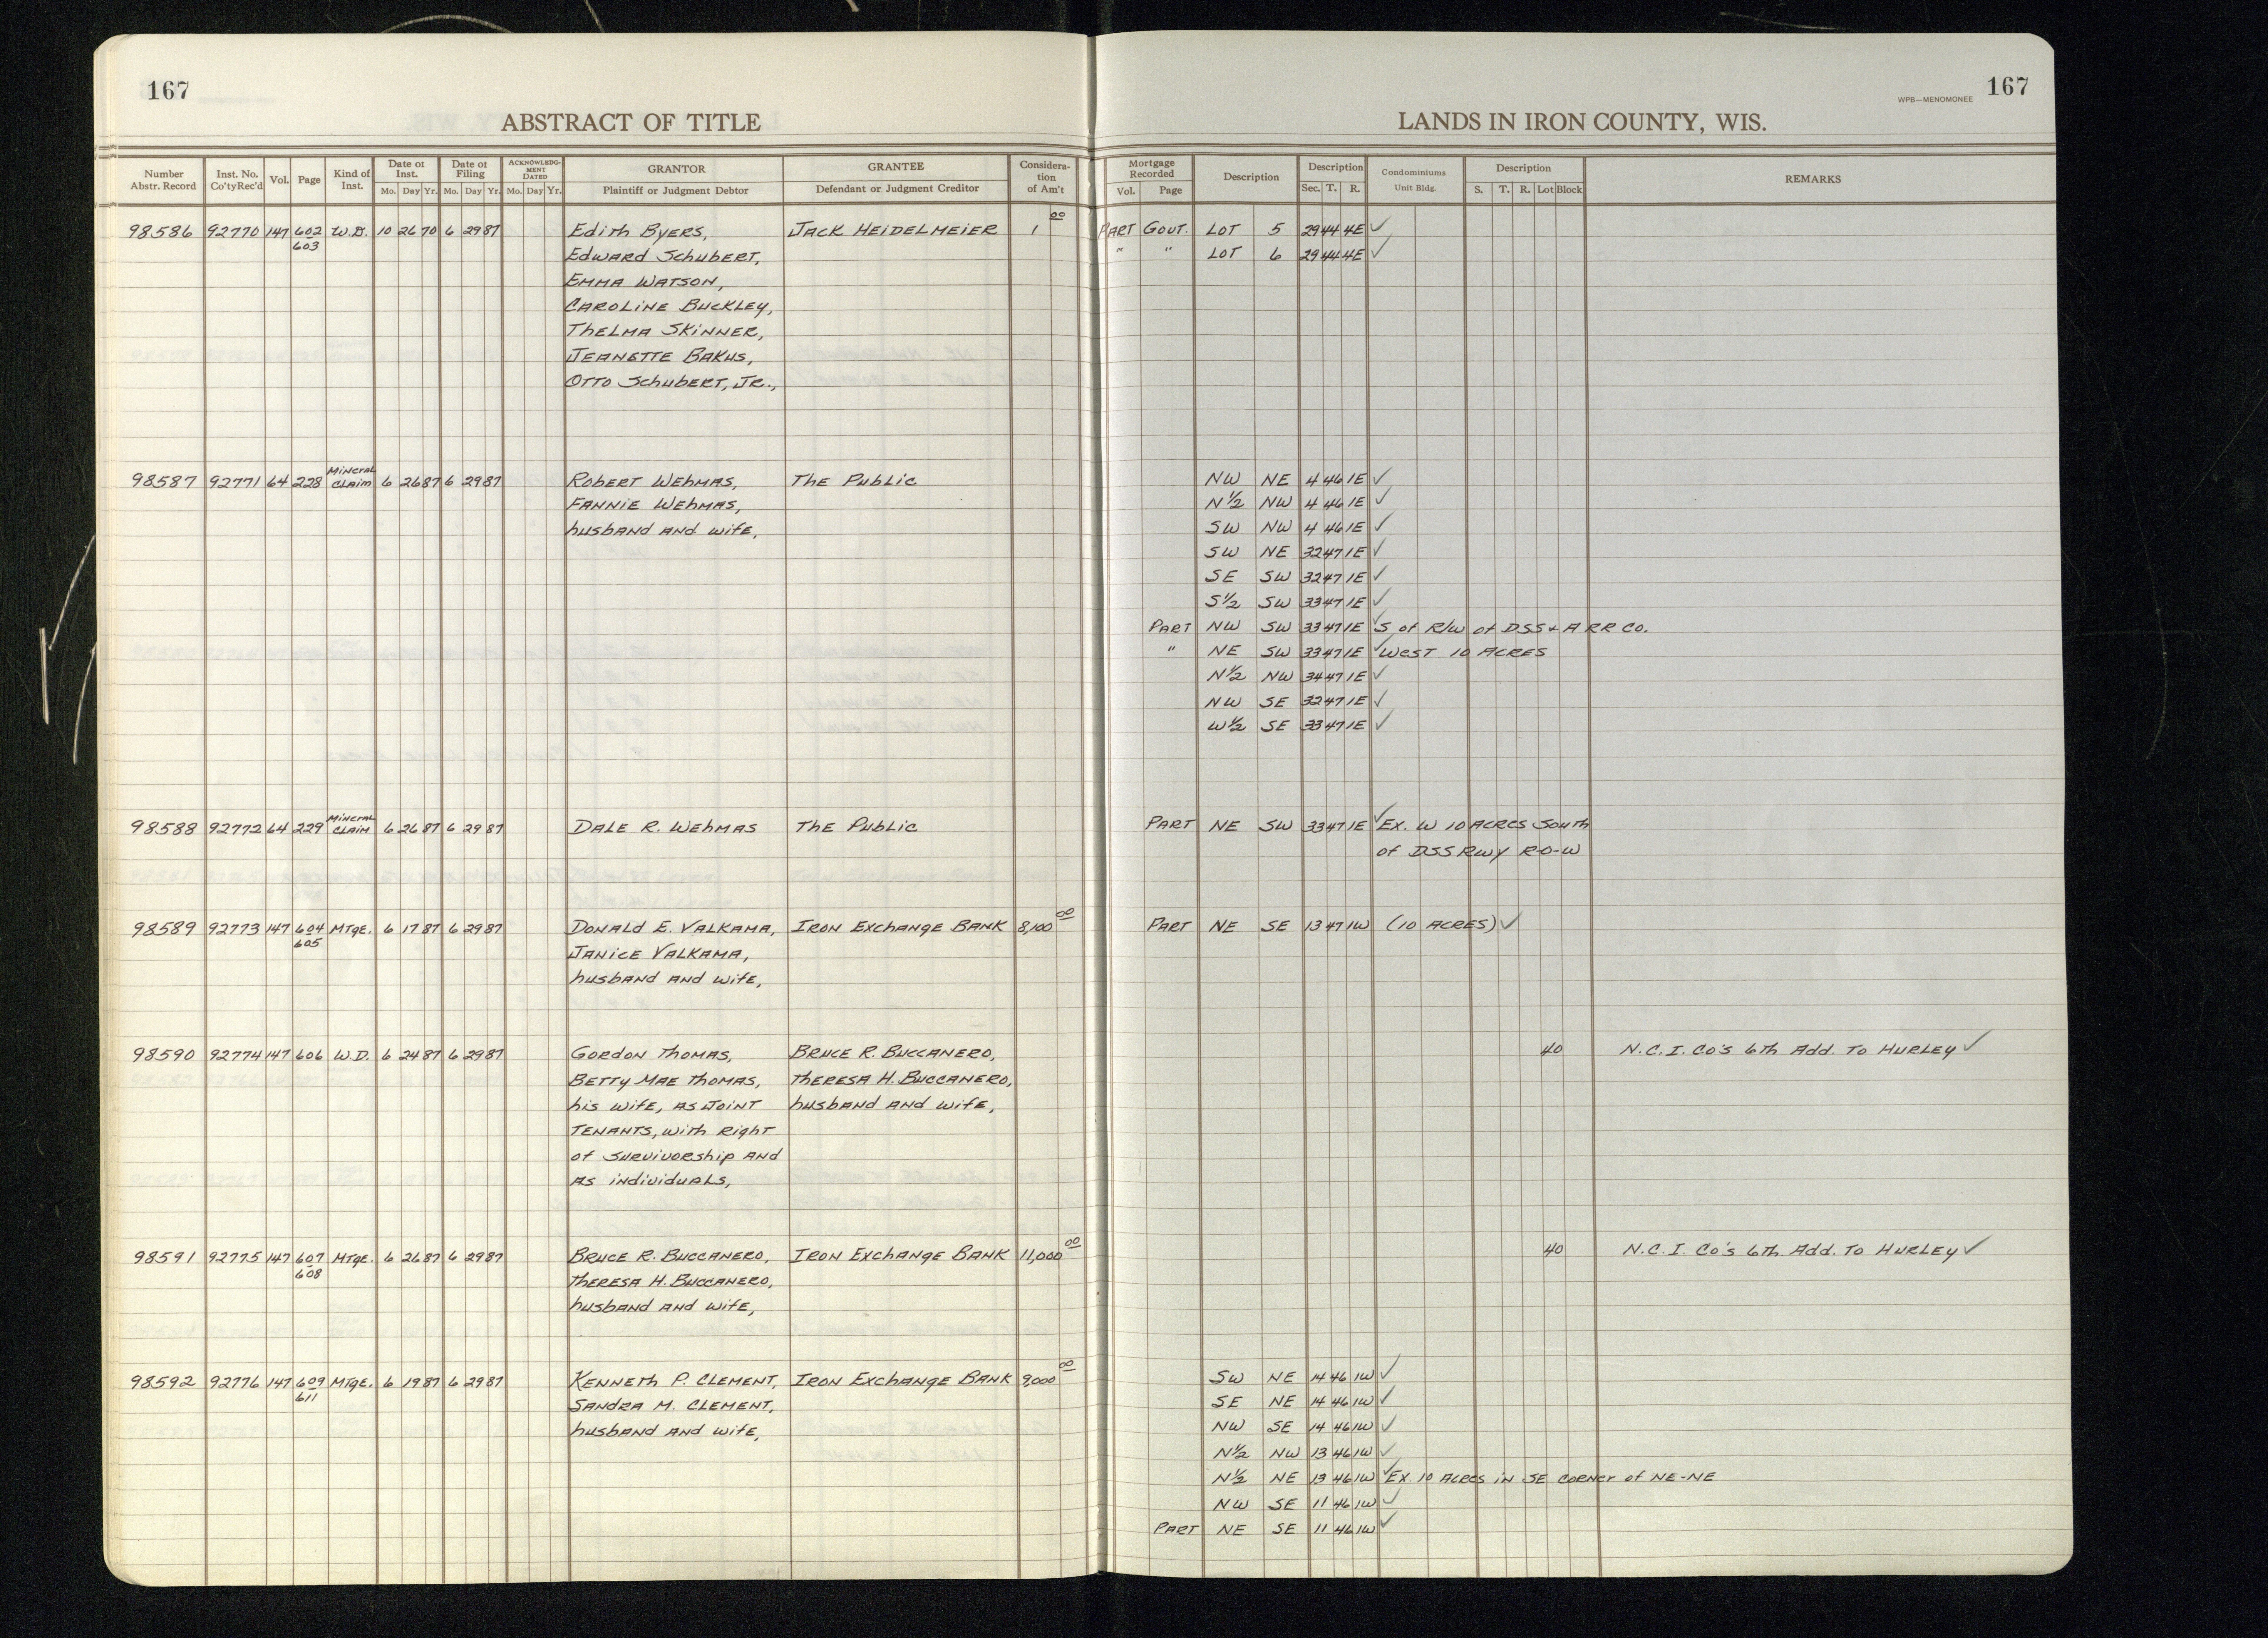 167
ABSTRACT OF TITLE
Number Abstr. Record | Inst. No. Co'ty Rec'd | Vol. | Page | Kind of Inst. | Date of Inst. Mo. Day Yr. | Date of Filing Mo. Day Yr. | ACKNOWLEDGMENT DATED Mo. Day Yr. | GRANTOR Plaintiff or Judgment Debtor | GRANTEE Defendant or Judgment Creditor | Consideration of Am't
98586 92770 147 602 W.D. 10 26 70 6 29 87 Edith Byers, Jack Heidelmeier 1 00
603 Edward Schubert,
Emma Watson,
Caroline Buckley,
Thelma Skinner,
Jeanette Bakus,
Otto Schubert, Jr.,
98587 92771 64 228 Mineral Claim 6 26 87 6 29 87 Robert Wehmas, The Public
Fannie Wehmas,
husband and wife,
98588 92772 64 229 Mineral Claim 6 26 87 6 29 87 Dale R. Wehmas The Public
98589 92773 147 604 Mtge. 6 17 87 6 29 87 Donald E. Valkama, Iron Exchange Bank 8,100 00
605 Janice Valkama,
husband and wife,
98590 92774 147 606 W.D. 6 24 87 6 29 87 Gordon Thomas, Bruce R. Buccanero,
Betty Mae Thomas, Theresa H. Buccanero,
his wife, as joint husband and wife,
tenants, with right
of survivorship and
as individuals,
98591 92775 147 607 Mtge. 6 26 87 6 29 87 Bruce R. Buccanero, Iron Exchange Bank 11,000 00
608 Theresa H. Buccanero,
husband and wife,
98592 92776 147 609 Mtge. 6 19 87 6 29 87 Kenneth P. Clement, Iron Exchange Bank 9,000 00
611 Sandra M. Clement,
husband and wife,
167
WPB—MENOMONEE
LANDS IN IRON COUNTY, WIS.
Mortgage Recorded Vol. Page | Description | Description Sec. T. R. | Condominiums Unit Bldg. | Description S. T. R. Lot Block | REMARKS
Part Gout. Lot 5 29 44 4E ✓
" " Lot 6 29 44 4E ✓
NW NE 4 46 1E ✓
N½ NW 4 46 1E ✓
SW NW 4 46 1E ✓
SW NE 32 47 1E ✓
SE SW 32 47 1E ✓
S½ SW 33 47 1E ✓
Part NW SW 33 47 1E ✓ S of R/W of DSS & A RR Co.
" NE SW 33 47 1E ✓ West 10 acres
N½ NW 34 47 1E ✓
NW SE 32 47 1E ✓
W½ SE 33 47 1E ✓
Part NE SW 33 47 1E ✓ Ex. W 10 acres South
of DSS Rwy R-O-W
Part NE SE 13 47 1W (10 acres) ✓
40 N.C.I. Co's 6th Add. To Hurley ✓
40 N.C.I. Co's 6th. Add. To Hurley ✓
SW NE 14 46 1W ✓
SE NE 14 46 1W ✓
NW SE 14 46 1W ✓
N½ NW 13 46 1W ✓
N½ NE 13 46 1W ✓ Ex 10 acres in SE corner of NE-NE
NW SE 11 46 1W ✓
Part NE SE 11 46 1W ✓